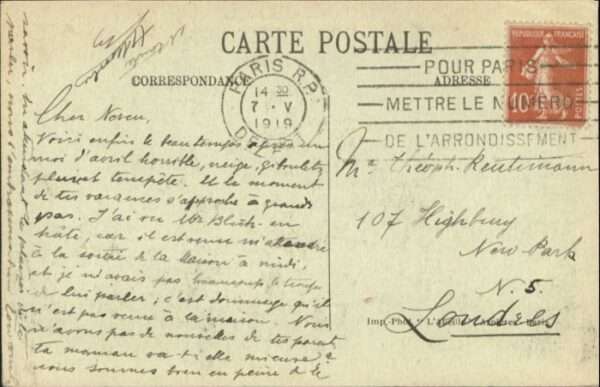 CARTE POSTALE
CORRESPONDANCE
ADRESSE
RÉPUBLIQUE FRANÇAISE
10
POSTES
PARIS R.P.
14 30
7 - V
1919
POUR PARIS
METTRE LE NUMÉRO
DE L'ARRONDISSEMENT
Cher Neveu,
Voici enfin le beau temps après un
moi d'avril horrible, neige, giboulets
pluie et tempête. Et le moment
de tes vacances s'approche à grands
pas. J'ai vu Mr en
hâte, car il est venu m'attendre
à la sortie de la Maison à midi,
et je n'avais pas beaucoup le temps
de lui parler, c'est dommage qu'il
n'est pas venu à la maison. Nous
n'avons pas de nouvelles de tes parents
ta maman va-t-elle mieux?
nous sommes bien en peine de le
savoir. En attendant le plaisir de te
parler, nous t'embrassons
Mr. Théoph. Reutimann
107 Highbury
New Park
N. 5.
Londres
Imp.-Phot